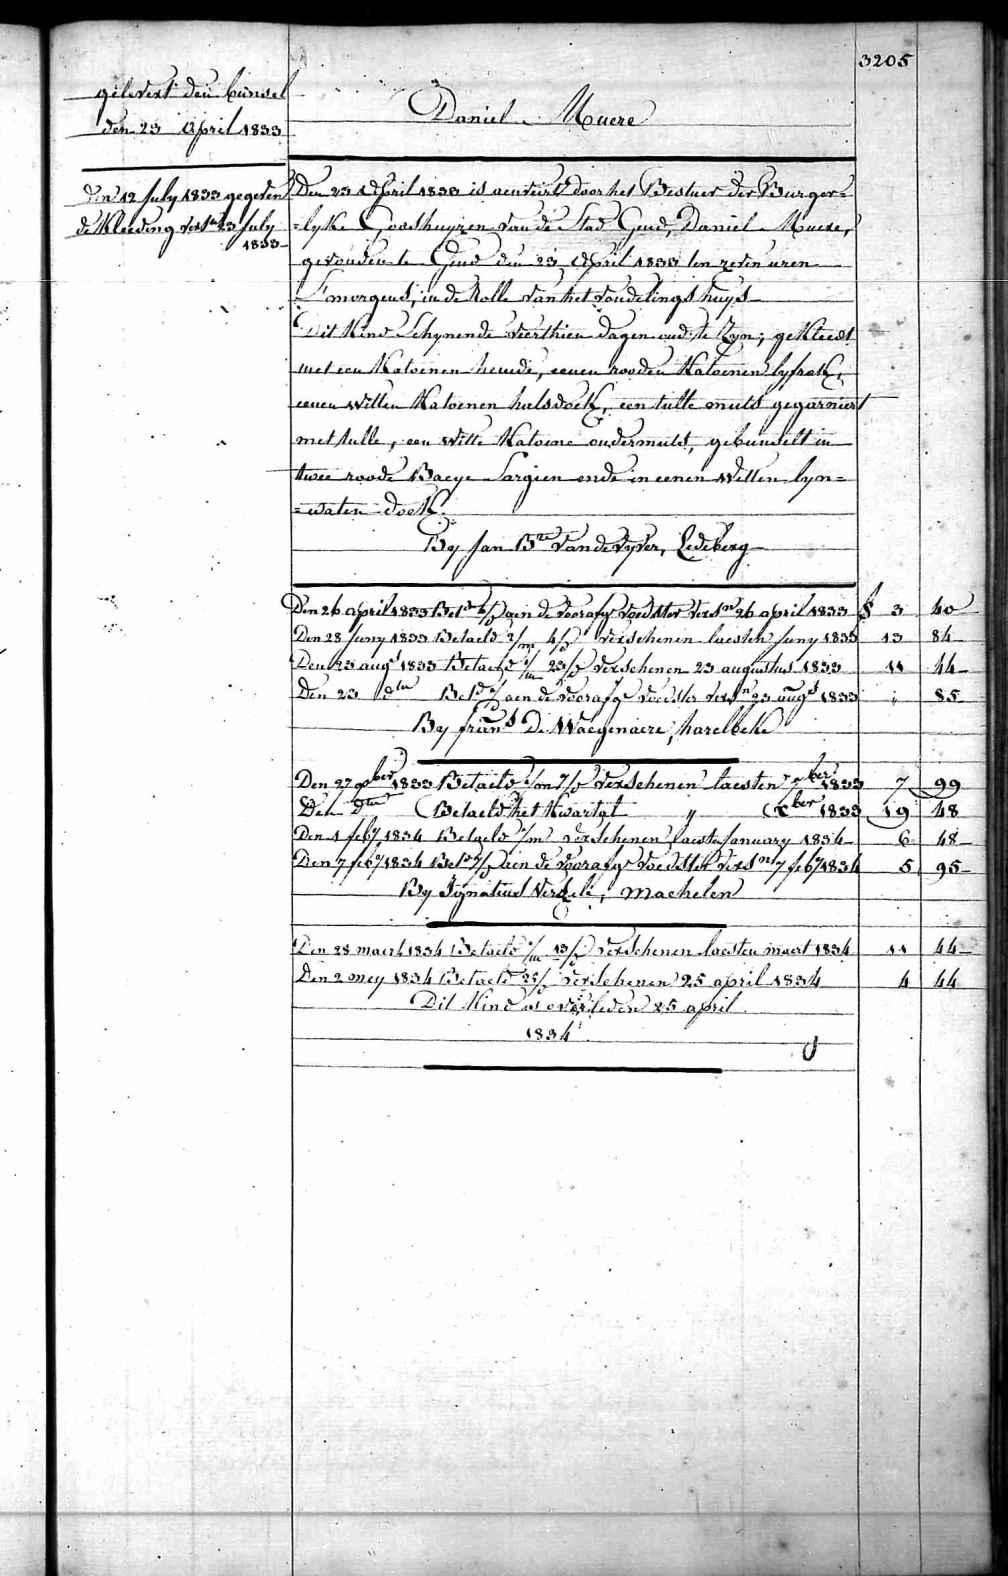 3205
gelevert den bunsel
den 23 April 1833
Daniel Muere
den 12 July 1833 gegeven
de Kleeding versn 23 July
1833
Den 23 April 1833 is aenveirt door het Bestuer der Burger=
=lyke Godshuyzen van de Stad Gend, Daniel Muere,
gevonden te Gend den 23 April 1833 ten zeven uren
Smorgens, in de Rolle van het vondelingshuys
Dit Kind Schynende veerthien dagen oud te Zyn; gekleedt
met een Katoenen hemde, eenen rooden Katoenen lyfrok,
eenen witten Katoenen halsdoek, een tulle muts gegarniert
met tulle, een witte Katoene ondermuts, gebunselt in
twee roode Baeye Sargien ende in eenen Witten lyn=
=waten doek.
By Jan Bte Vandevyver, Ledeberg
Den 26 april 1833 Betd aen de voorafg voedster versn 26 april 1833 3 40
Den 28 Juny 1833 Betaeld 2/m 4/d verschenen laesten Juny 1833 13 84
Den 23 augt 1833 Betaeld 1/m 23/d verschenen 23 augustus 1833 11 44
Den 23 dto Betd aen de voorafg voedster versn 23 augt 1833 " 85
By frans De Waegenaere, harelbeke
Den 27 9ber 1833 Betaeld 1/m 7/d verschenen laesten 7ber 1833 7 99
Den dto Betaeld het Kwartal " Xber 1833 19 48
Den 1 feby 1834 Betaeld 1/m verschenen laesten January 1834 6 48
Den 7 feby 1834 Betd 7/d aen de voorafg voedster versn 7 feby 1834 5 95
By Ignatius Verzele, Machelen
Den 28 maert 1834 Betaeld 1/m 13/d verschenen laesten maert 1834 11 44
Den 2 mey 1834 Betaeld 25/d verschenen 25 april 1834 4 44
Dit Kind is overleden 25 april
1834